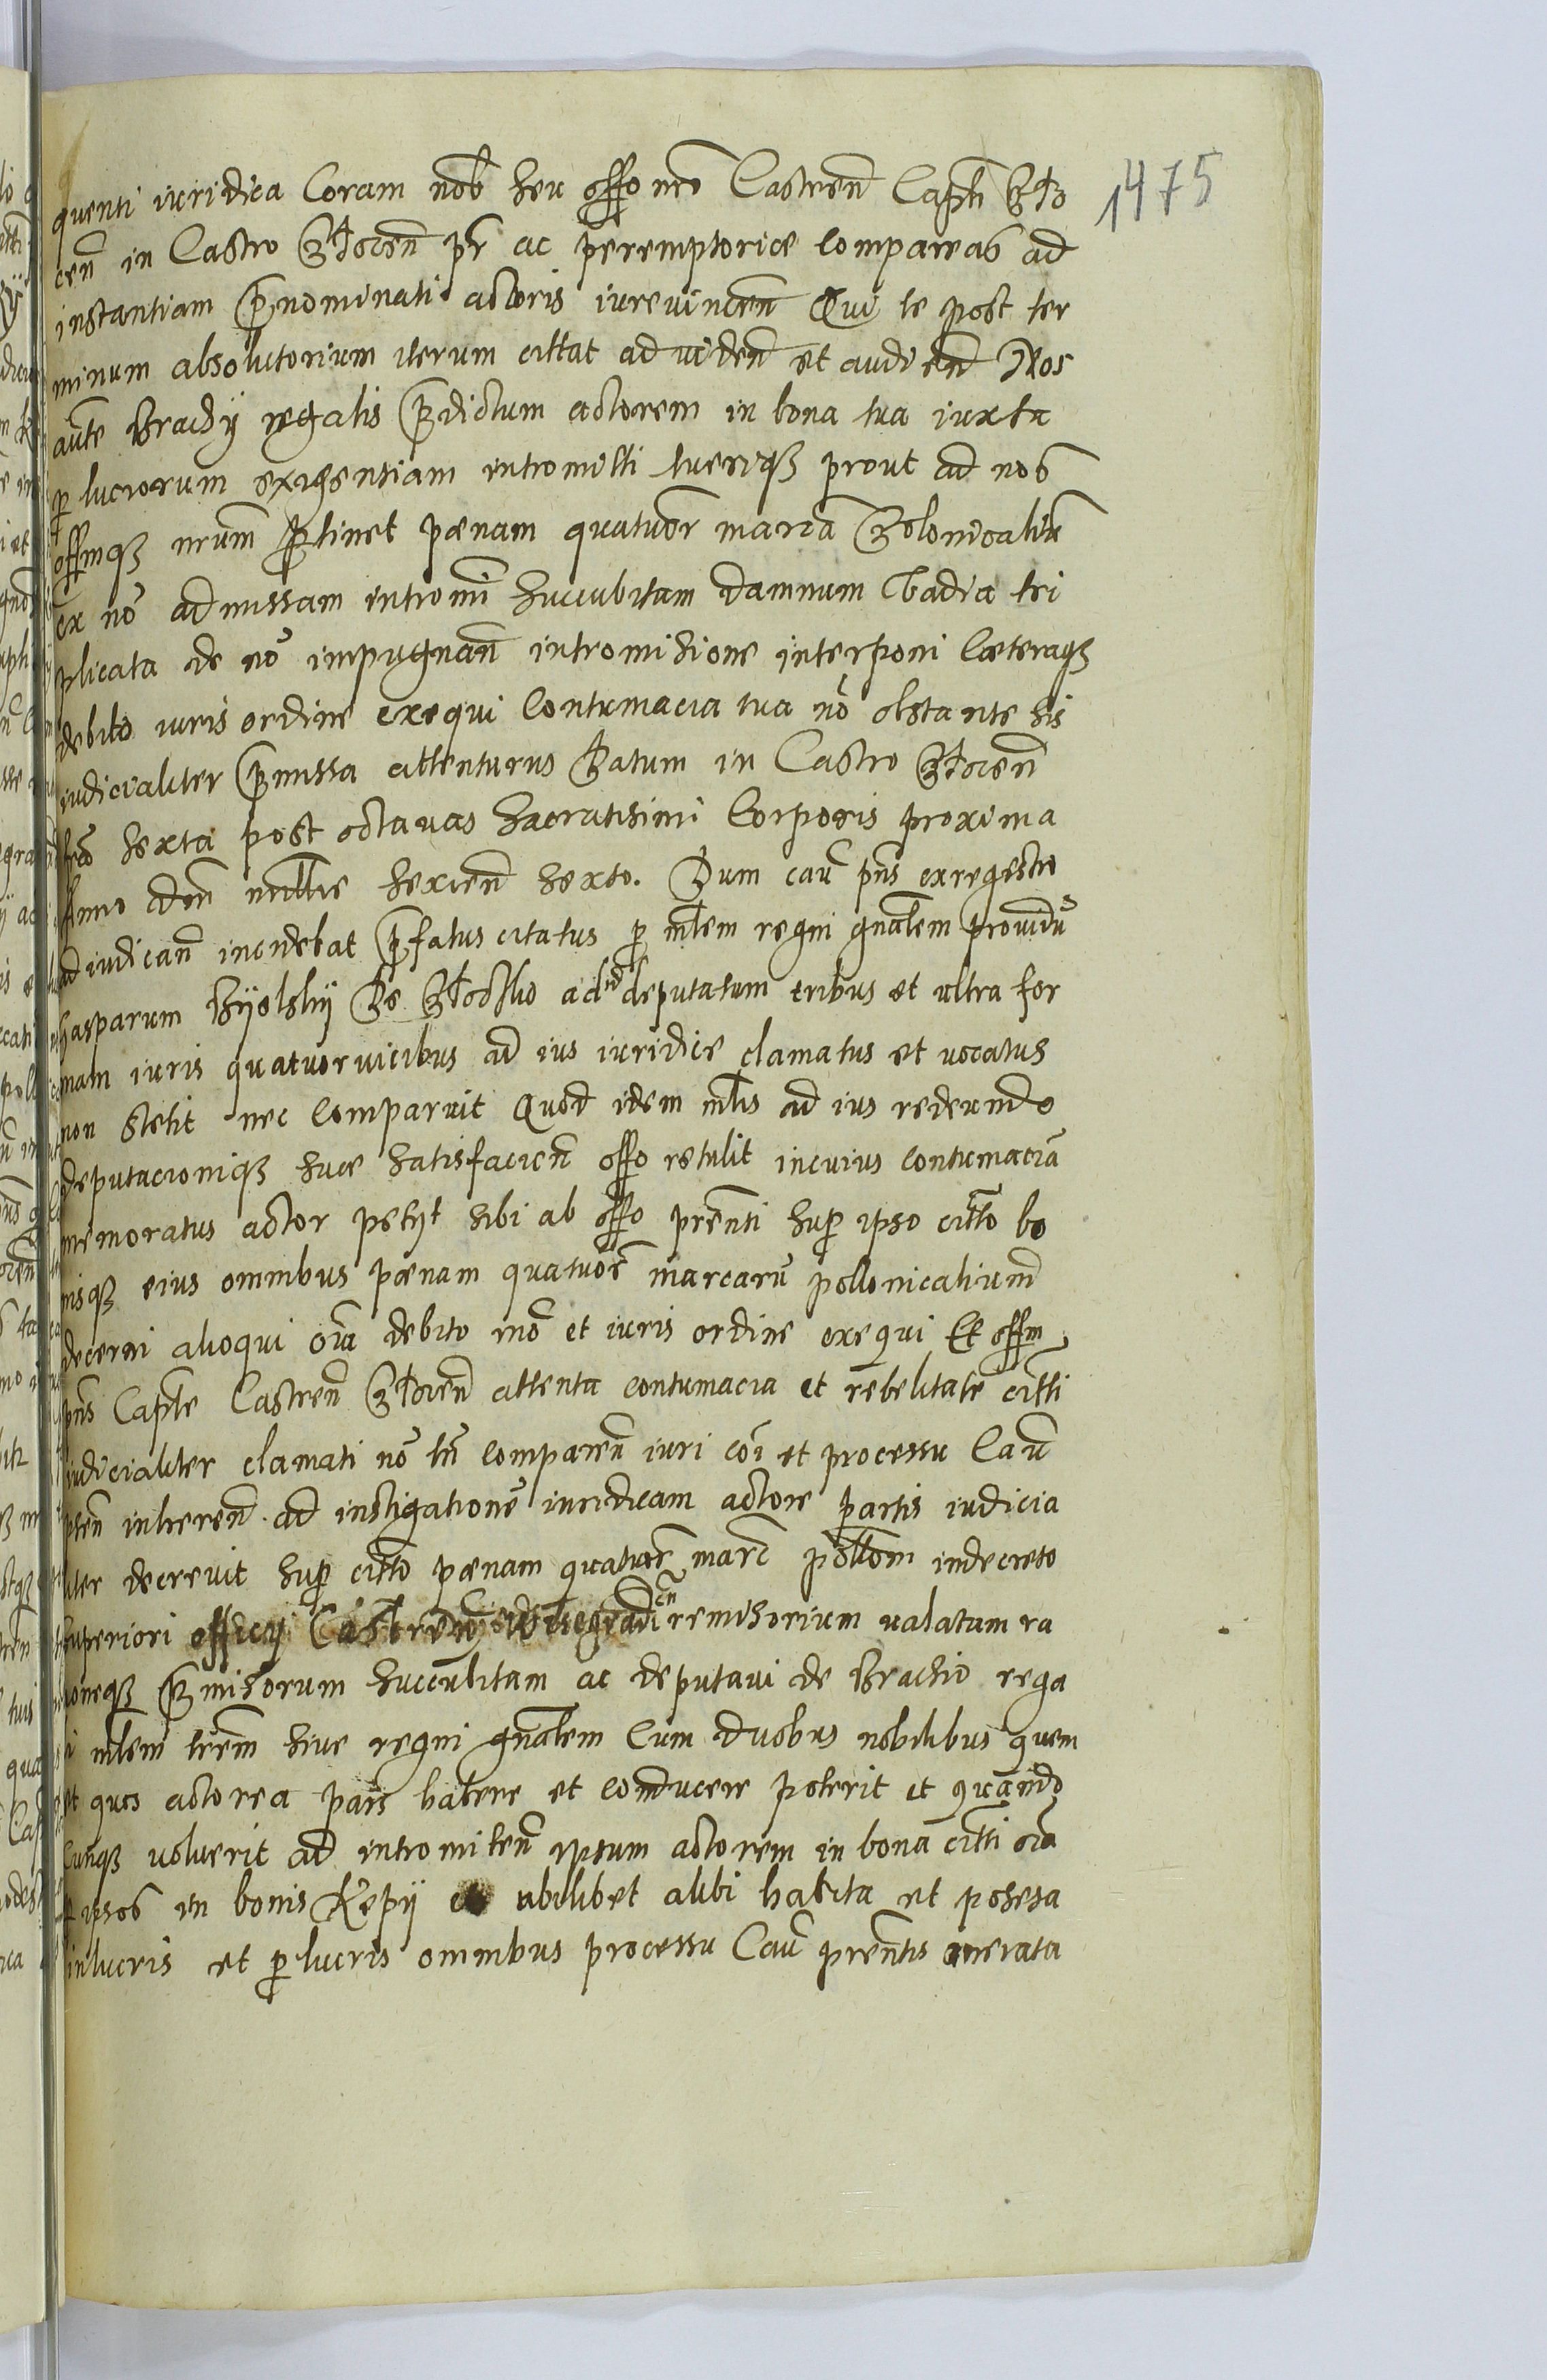 1475
quenti iuridica Coram nob seu offo nro Castren Captli
cen in Castro pr ac peremptorice Compareas ad
instantiam pnominati actoris iurevincen Qui te post ter
minum absolutorium iterum cittat ad viden et audien Nos
aute Brachy regalis pdictum actorem in bona tua iuxta
p lucrorum exigentiam intromitti tueriqz prout ad nos
offmqz nrum ptinet pœnam quatuor marca Polonicaliu
ex no admissam intromi succubitam damnum Vadia tri
plicata de no impugnan intromisione interponi Cæteraqz
debito iuris ordine exequi Contumacia tua no obstante sis
iudicialiter pmissa attenturus Datum in Castro
feo sexta post octavas Sacratisimi Corporis proxima
Anno don millre sexcen sexto. Dum cau pns ex regestro
ad iudican incidebat pfatus citatus p mlem regni gnalem providu
Gasparum Byelsky De ad id deputatum tribus et ultra for
mam iuris quatuor vicibus ad ius iuridice clamatus et vocatus
non Stetit nec Comparuit Quod idem mlis ad ius redeundo
deputacioniqz suæ satisfacien offo retulit in cuius contumacia
memoratus actor petyt sibi ab offo prenti sup ipso citto bo
nisqz eius omnibus pœnam quatuor marcaru pollonicalium
decerni alioqui oia debito mo et iuris ordine exequi Et offm
pns Captle Castren attenta contumacia et rebelitate citti
iudicialiter clamati no tn comparen iuri coi et processu Cau
pten inheren ad instigatione iuridicam actore partis iudicia
liter decrevit sup citto pœnam quatuor marc pollom in decreto
superiori officy Castren remisorium valatam ra
oneqz pmisorum succubitam ac deputavi de Brachio rega
li mlem trem sive regni gnalem Cum duobus nobilibus quem
et quos actorea pars habere et conducere poterit et quando
Cunqz voluerit ad intromiten ipsum actorem in bona citti oia
p ipsos in bonis Kepy et ubilibet alibi habita et posesa
in lucris et p lucris omnibus processu Cau prentis onerata